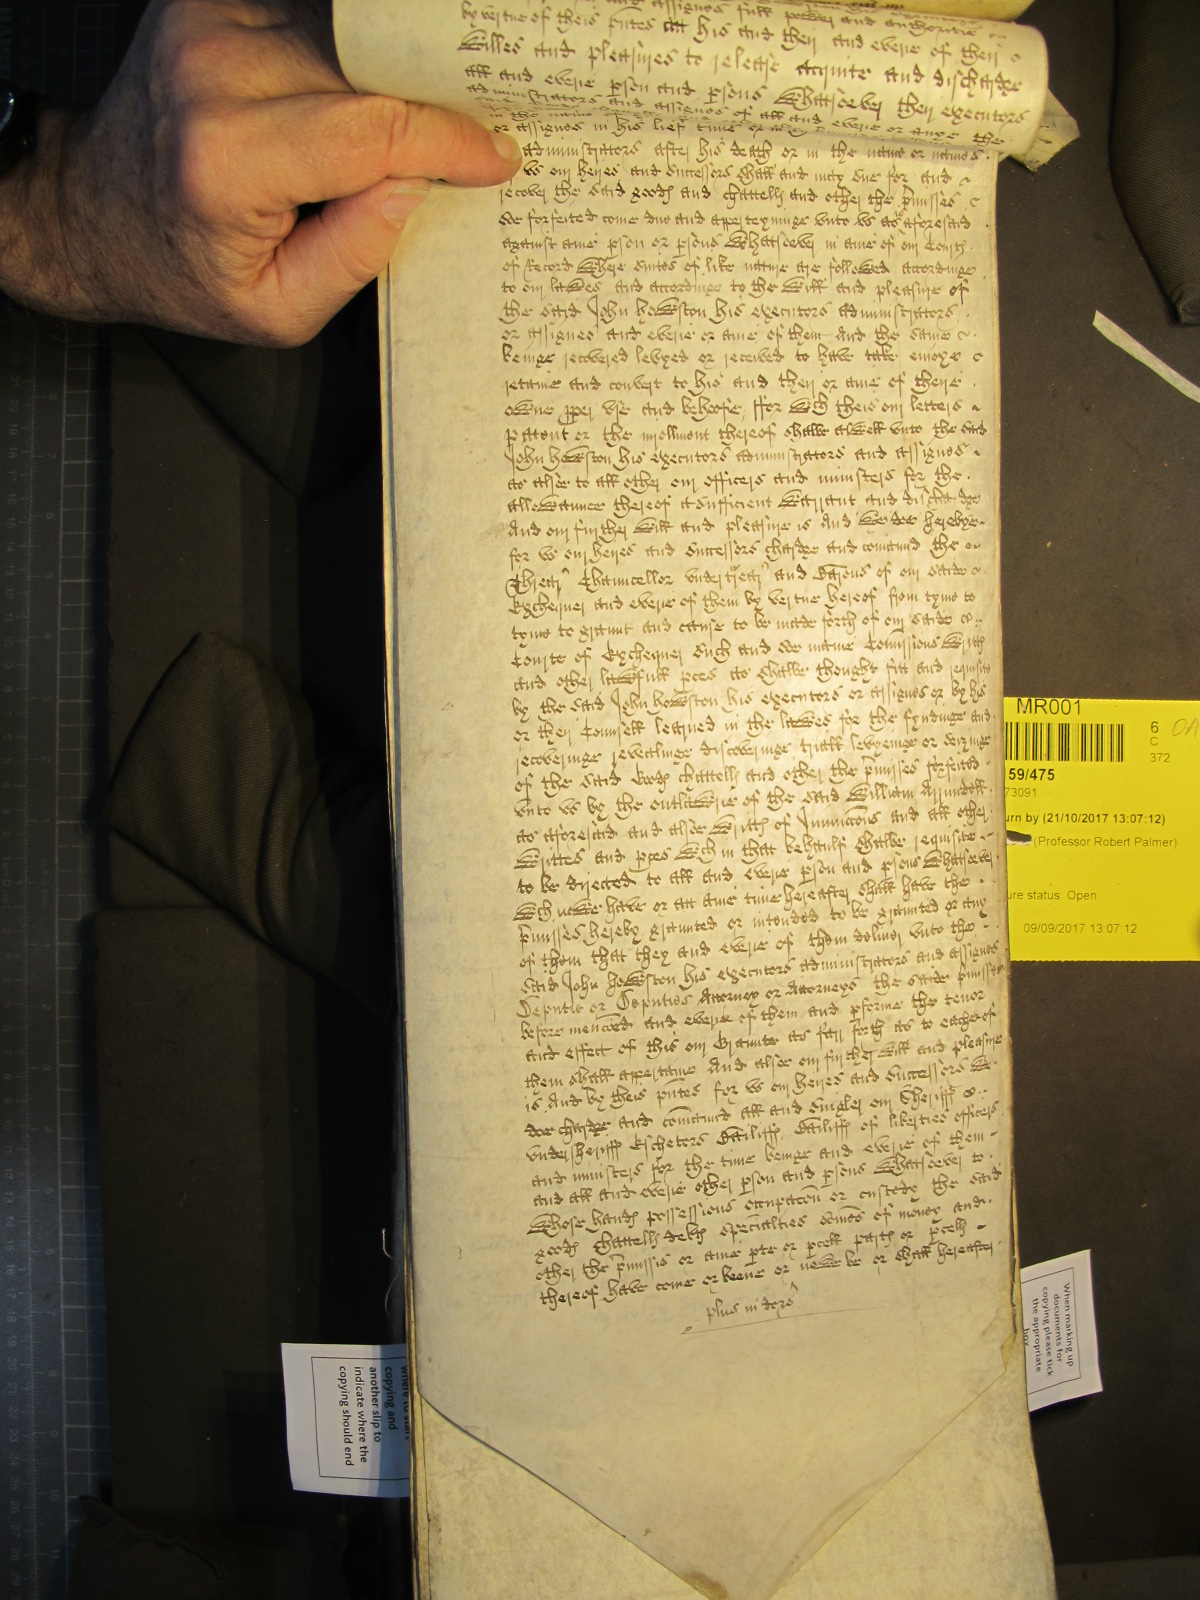 and assignes full power and authoritie
by vertue of theis pñtes att his and their and everie of their
Willes and pleasures to release acquite and discharge
all and everie pson and psons Whatsoever their executors
administrators and assignes of all and everie or anye the
or assignes in his lief time or
administrators after his death or in the name or names
us our heyres and Successors shall and may sue for and
recover the said goods and chattells and other the pmisses
soe forfeited come due and apperteyninge unto us as aforesaid
against anie pson or psons Whatsoever in anie of our Courts
of Record Where suites of like nature are followed accordinge
to our lawes and accordinge to the Will and pleasure of
the said John howston his executors administrators
or assignes and everie or anie of them And the same
beinge recovered levyed or received to have take enioye
retaine and convert to his and their or anie of theire
owne pper use and behoofe, ffor Wch theis our letters
patent or the inrollment thereof shalbe aswell unto the said
John howston his executors administrators and assignes
as alsoe to all other our officers and ministers for the
allowaunce thereof a sufficient Warrant and discharge
And our further Will and pleasure is And Wee doe hereby
for us our heyres and Successors chardge and comaund the
Threār Chauncellor undertreār and Barons of our saide
Exchequer and everie of them by vertue hereof from tyme to
tyme to graunt and cause to be made forth of our saide
Courte of Exchequer such and soe manie Comissions Writts
and other lawfull pces as shalbe thought fitt and requisite
by the said John howston his executors or assignes or by his
or their Counsell learned in the lawes for the fyndinge and
recoveringe revealinge discoveringe triall levyeinge or seizinge
of the said goods chattells and other the pmisses forfeited
unto us by the outlawrie of the said William Arrundell
as aforesaid and alsoe Writts of Iniunccons and all other
Writtes and pces Wch in that behaulf shalbe requisite
to be directed to all and everie pson and psons Whatsoever
Wch nowe have or att anie time hereafter shall have the
pmisses hereby graunted or intended to be graunted or any
of them that they and everie of them deliver unto the
said John howston his executors administrators and assignes
Deputie or Deputies Attorney or Attorneys the saide pmisses
before mencoed and everie of them and pforme the tenor
and effect of this our Graunte as farr forth as to each of
them shall appertaine And alsoe our further Will and pleasure
is And by theis pñtes for us our heyres and Successors Wee
doe chardge and comaund all and singler our Sheriffs
undersheriffs Eschetors Bailiffs Bailiffs of liberties officers
and ministers for the time beinge and everie of them
and all and everie other pson and psons Whatsoever to
Whose hands possessions occupacon or custody the said
goods Chattells debts specialties somes of money and
other the pmissis or anie pte or pcell parts or pcells
thereof have come or beene or nowe be or shall hereafter
plus in dors
MR001
6
C
372
59/475
73091
urn by (21/10/2017 13:07:12)
(Professor Robert Palmer)
ure status Open
09/09/2017 13:07:12
When marking up
documents for
copying please tick
the appropriate
box
where to start
copying and
another slip to
indicate where the
copying should end